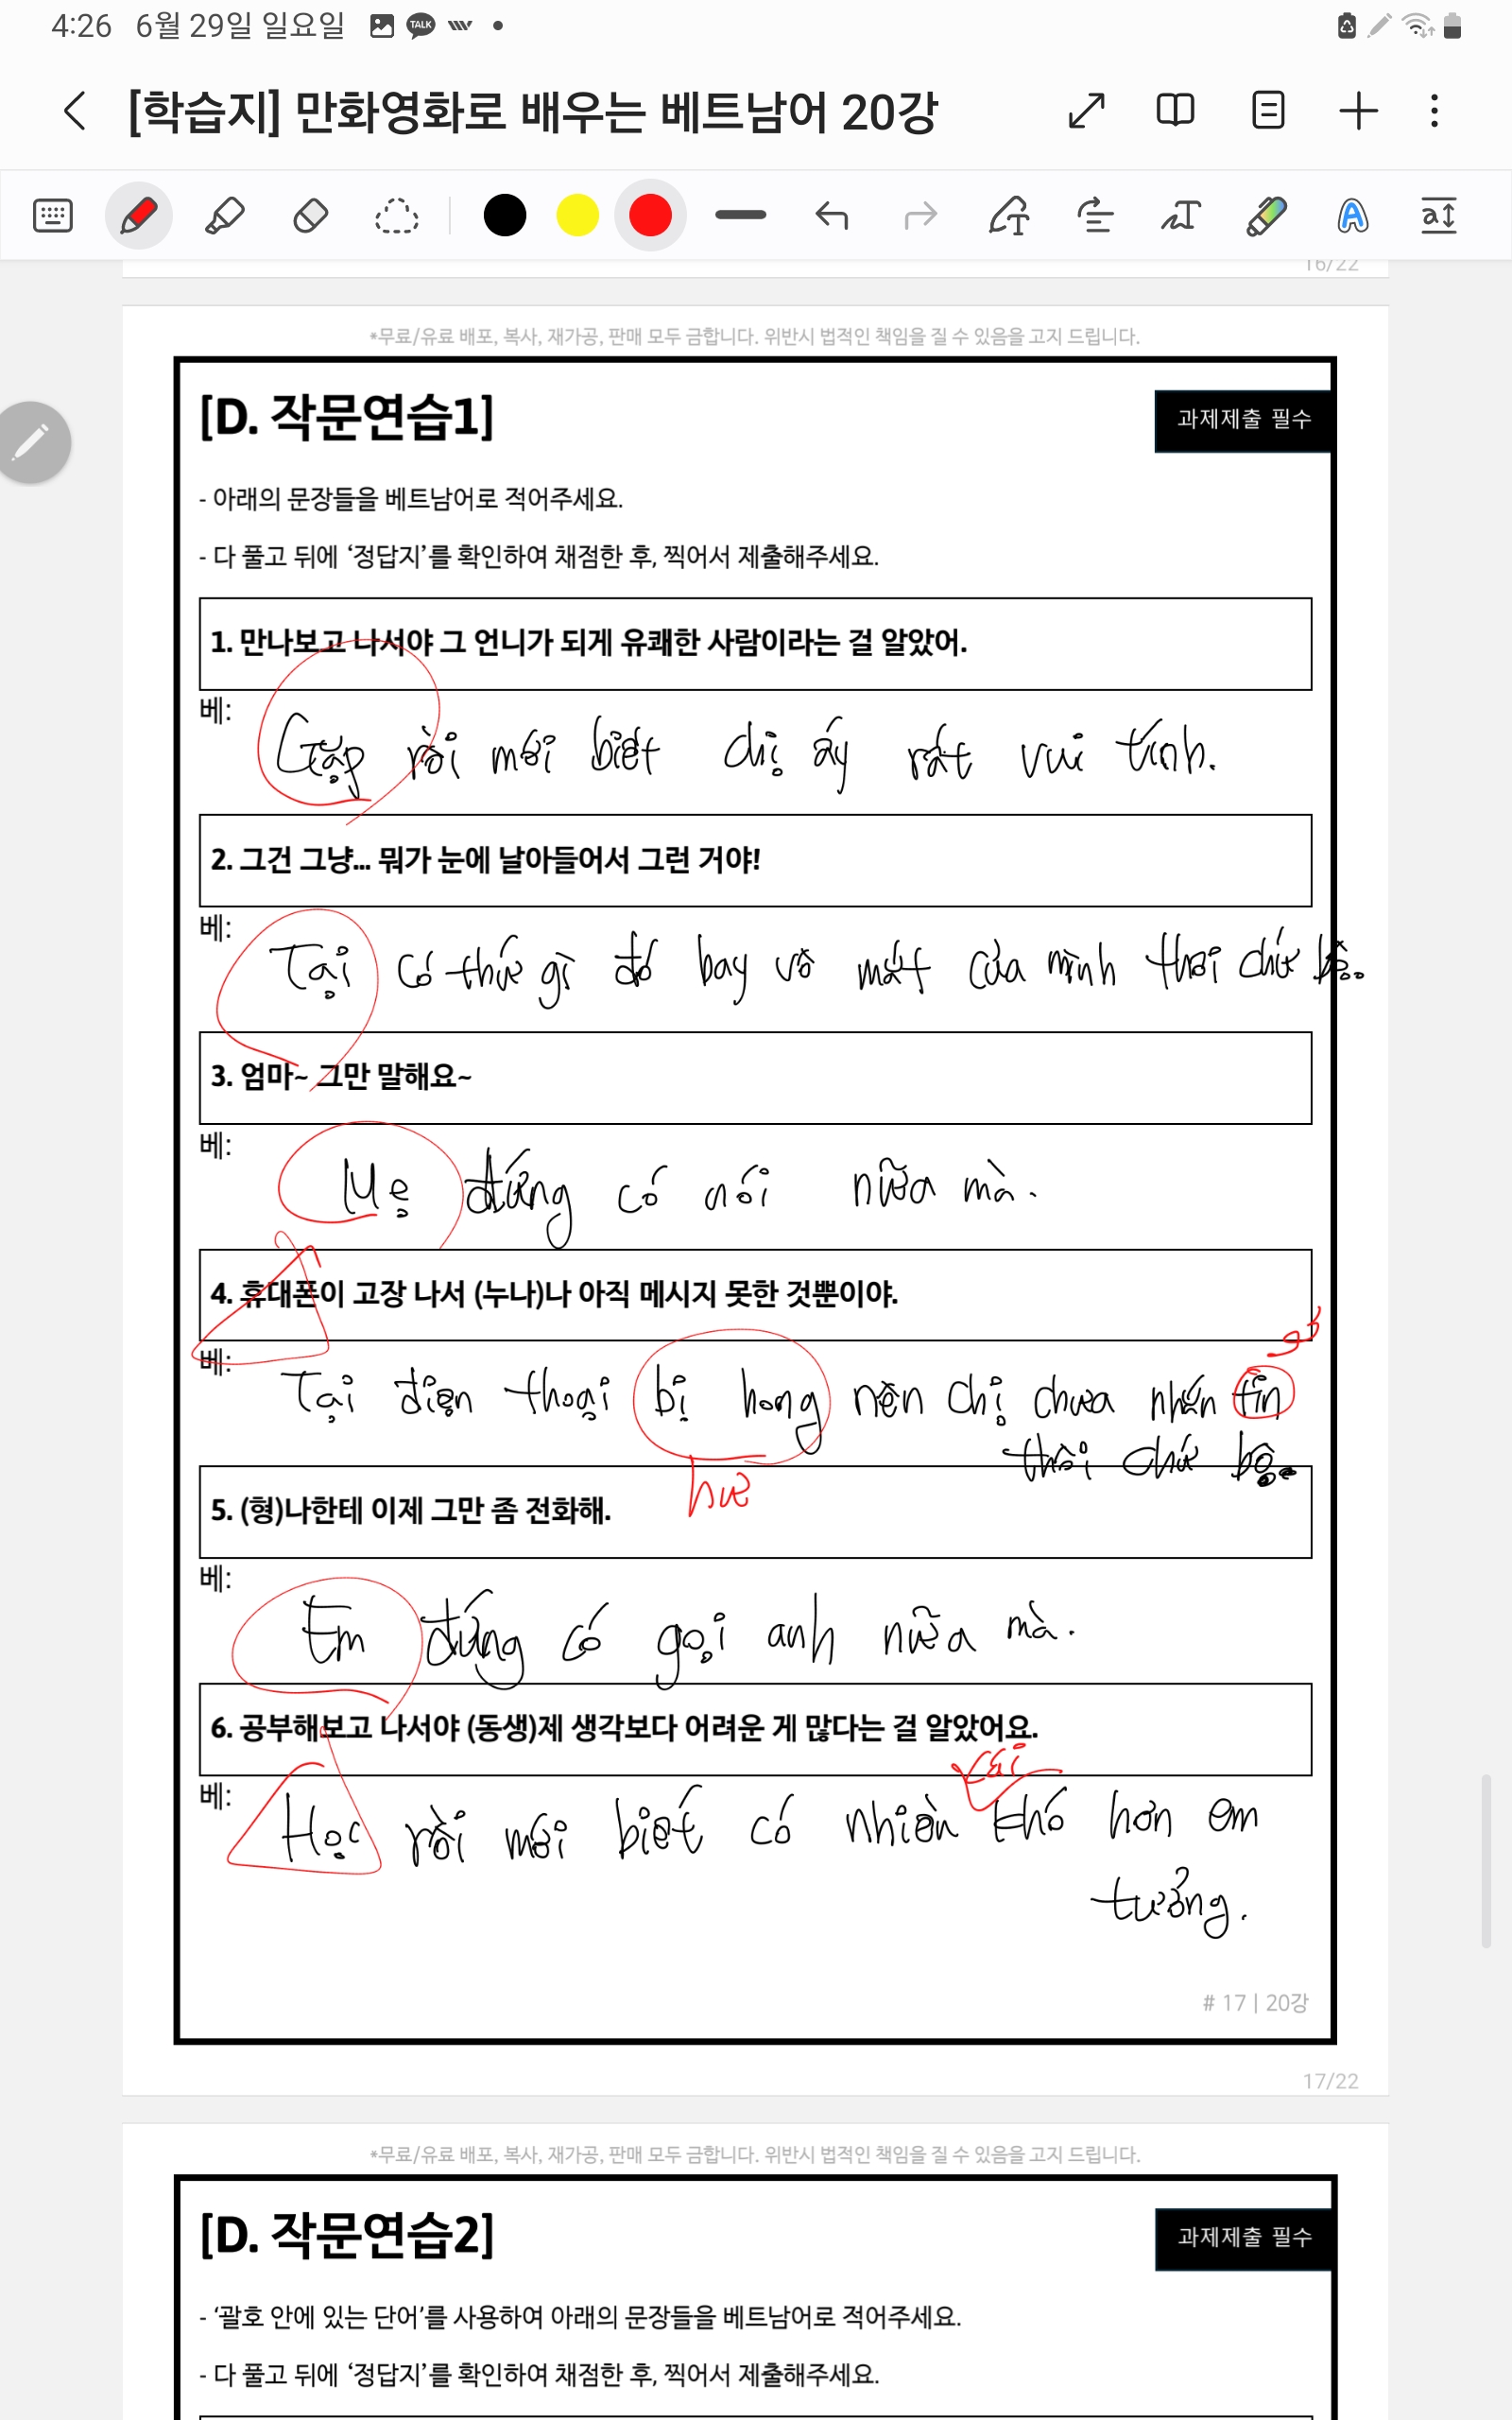 4:26 6월 29일 일요일 TALK
[학습지] 만화영화로 배우는 베트남어 20강
16/22
*무료/유료 배포, 복사, 재가공, 판매 모두 금합니다. 위반시 법적인 책임을 질 수 있음을 고지 드립니다.
[D. 작문연습1]
과제제출 필수
- 아래의 문장들을 베트남어로 적어주세요.
- 다 풀고 뒤에 ‘정답지’를 확인하여 채점한 후, 찍어서 제출해주세요.
1. 만나보고 나서야 그 언니가 되게 유쾌한 사람이라는 걸 알았어.
베: Gặp rồi mới biết chị ấy rất vui tính.
2. 그건 그냥... 뭐가 눈에 날아들어서 그런 거야!
베: Tại có thứ gì đó bay vô mắt của mình thôi chứ bộ.
3. 엄마~ 그만 말해요~
베: Mẹ đừng có nói nữa mà.
4. 휴대폰이 고장 나서 (누나)나 아직 메시지 못한 것뿐이야.
베: Tại điện thoại bị hong nên chị chưa nhắn tin
thôi chứ bộ.
hư
5. (형)나한테 이제 그만 좀 전화해.
베: Em đừng có gọi anh nữa mà.
6. 공부해보고 나서야 (동생)제 생각보다 어려운 게 많다는 걸 알았어요.
cái
베: Học rồi mới biết có nhiều khó hơn em
tưởng.
# 17 | 20강
17/22
*무료/유료 배포, 복사, 재가공, 판매 모두 금합니다. 위반시 법적인 책임을 질 수 있음을 고지 드립니다.
[D. 작문연습2]
과제제출 필수
- ‘괄호 안에 있는 단어’를 사용하여 아래의 문장들을 베트남어로 적어주세요.
- 다 풀고 뒤에 ‘정답지’를 확인하여 채점한 후, 찍어서 제출해주세요.